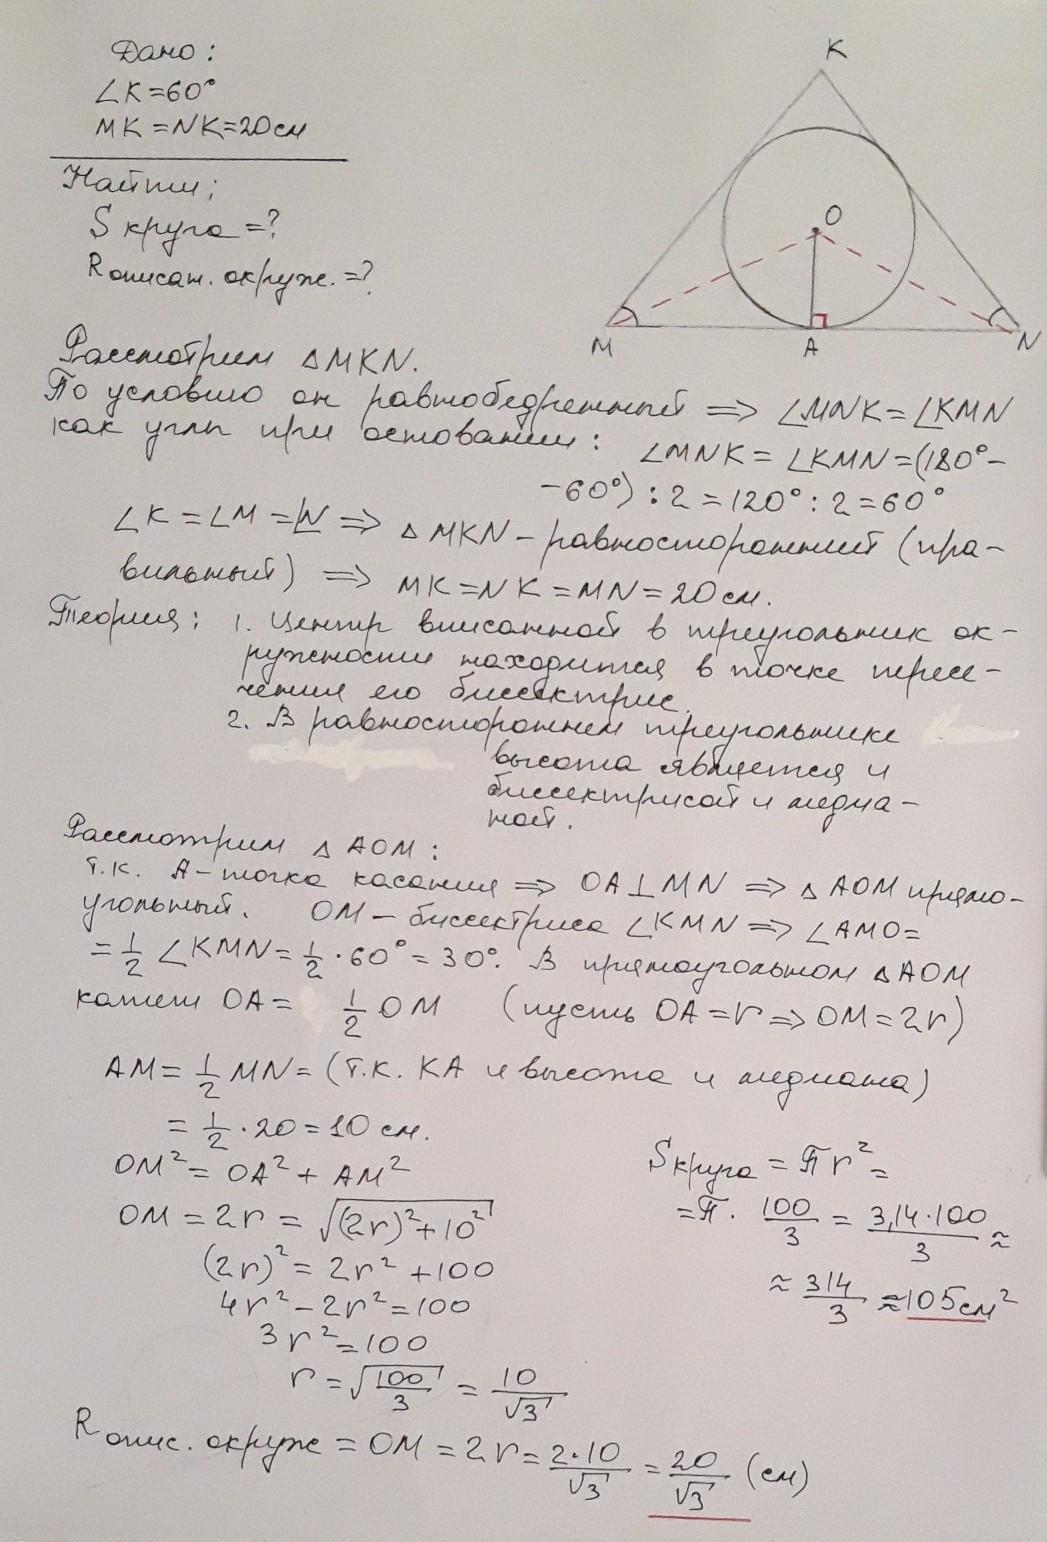 Дано:
∠K=60°
MK=NK=20см
Найти;
S круга=?
R описан. окруж.=?
K
O
M
A
N
Рассмотрим △MKN.
По условию он равнобедренный ⟹ ∠MNK=∠KMN
как углы при основании: ∠MNK=∠KMN=(180°-
-60°):2=120°:2=60°
∠K=∠M=∠N⟹ △MKN-равносторонний (пра-
вильный) ⟹ MK=NK=MN=20см.
Теория: 1. Центр вписанной в треугольник ок-
ружности находится в точке пересе-
чения его биссектрис.
2. В равностороннем треугольнике
высота является и
биссектрисой и медиа-
ной.
Рассмотрим △AOM:
т.к. A-точка касания ⟹ OA⊥MN ⟹ △AOM прямо-
угольный. OM-биссектриса ∠KMN⟹∠AMO=
=1/2 ∠KMN=1/2·60°=30°. В прямоугольном △AOM
катет OA= 1/2 OM (пусть OA=r⟹OM=2r)
AM=1/2 MN=(т.к. KA и высота и медиана)
=1/2·20=10см.
OM²=OA²+AM²
OM=2r=√((2r)²+10²)
(2r)²=2r²+100
4r²-2r²=100
3r²=100
r=√(100/3)=10/√3
S круга=πr²=
=π·100/3=3,14·100/3≈
≈314/3≈105см²
R опис. окруж=OM=2r=2·10/√3=20/√3 (см)